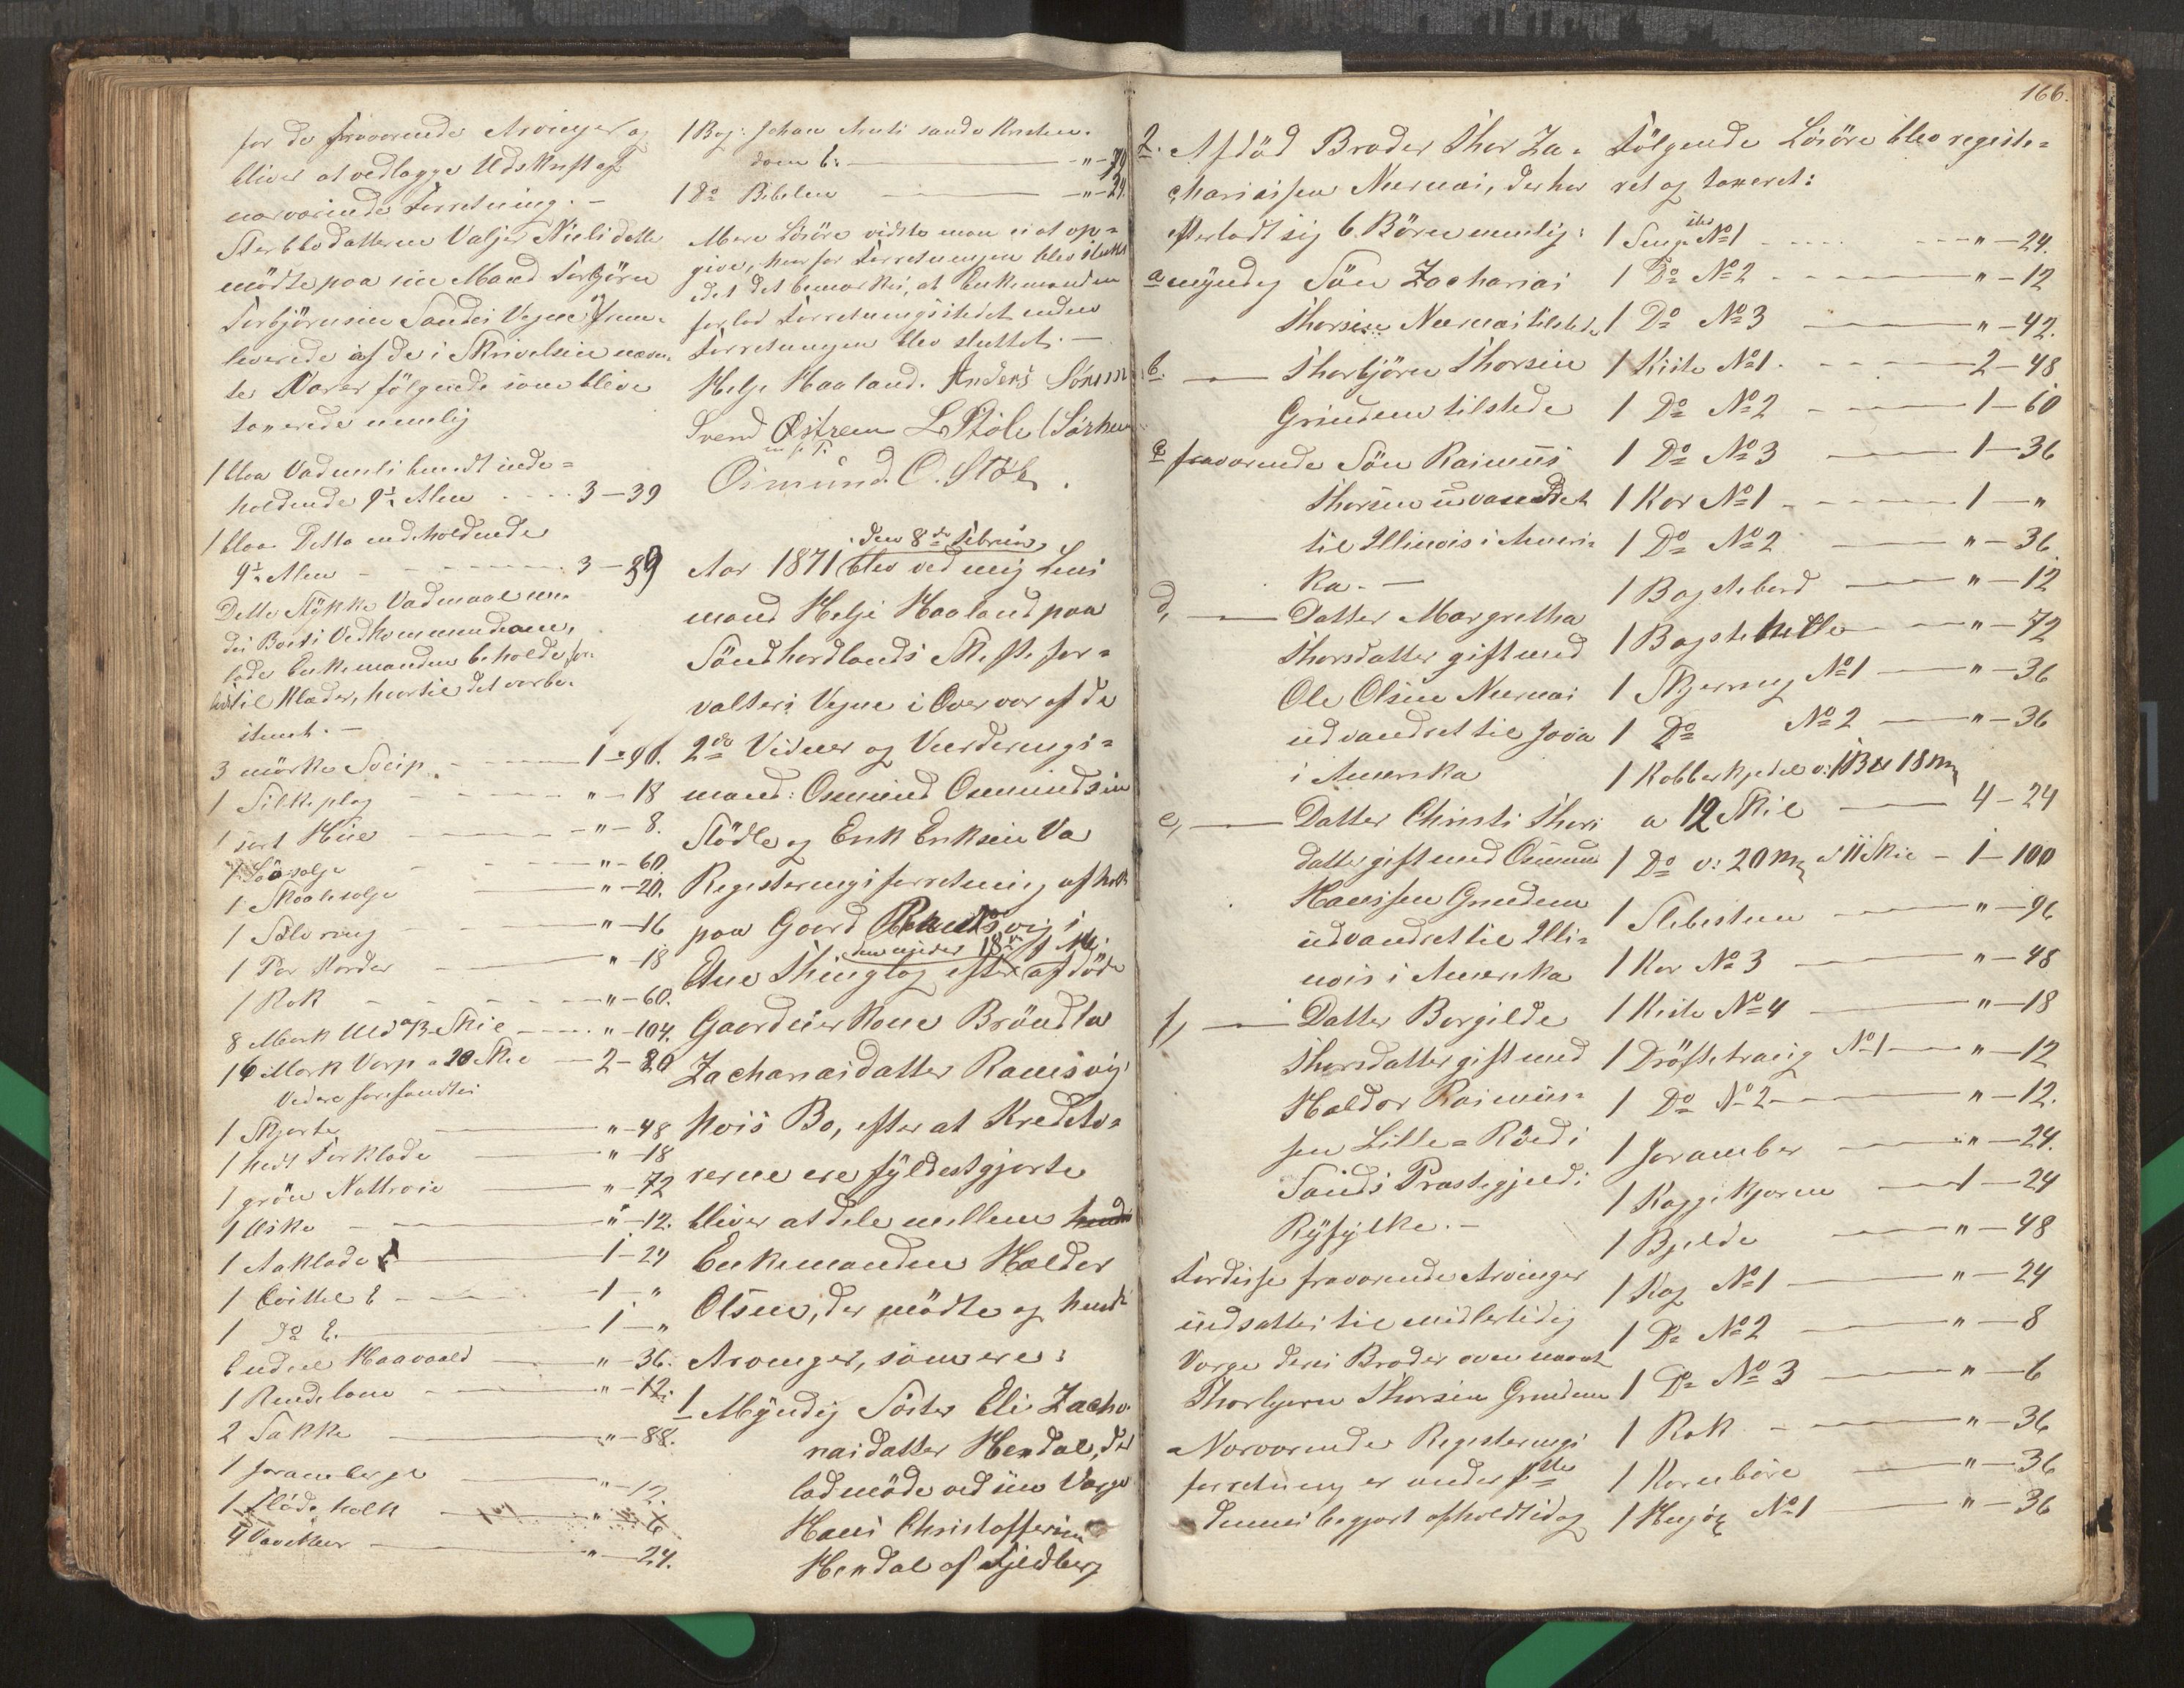 for de fraværende Arvinger og
bliver at vedlægge Udskrift af
nærværende Forretning. –
Sterbbodatteren Valjer Nielsdatter
mødte paa sin Mand Torbjörn
Torbjörnsen Sandes Vegne. Frem-
leverede af de i Skrivelsen nævn-
te Varer følgende som bleve
taxerede nemlig
1 blaa Vadmels bundt inde=
holdende 9½ Alen 3–39
1 blaa Detto indeholdende
9½ Alen 3–39
Dette Stÿkke Vadmael
Boets Vedkommendeom,
lode Enkemanden beholde
til Klæder, hvortil det var be-
stemt. –
3 mörke 1–90.
1 Silkeplag "–18
1 sort Hue "–8.
1 "–60.
1 "–20.
1 Sölvring "–16
1 Par Karder "–18
1 Rok "–60.
8 Mark Uld a 13 Skil "–104.
16 Mark Varp a 20 Skil 2–80
Videre forefandtes
1 Skjorte "–48
1 hvidt Forklæde "–18
1 grön Nattroie "–72
1 Æske "–12.
1 Aaklæde 1–24
1 Qvittel 1–"
1 Do 1–"
Endeel "–36.
1 "–12.
2 Sække "–88.
1 "–12.
1 Flöde kolk "–6
4 "–24.
1 Bog: Johan Arnts sande Kristen-
dom "–70
1 Do Bibelen "–24.
Mere Lösöre vidste man ei at op=
give, hvorfor Forretningen blev sluttet
idet det bemærkes, at Enkemanden
forlod Forretningsstedet inden
Forretningen blev sluttet. –
Helje Haaland. Anders Sörum
Svend Östrem L. Stöle
m. p. P.
Osmund. O. Stöle.
den 8de Februar
Aar 1871 blev ved mig Lens
mand Helje Haaland paa
Söndhordlands Skifte for=
valters Vegne i Overvær af de
2de Vidner og Vurderings=
mænd: Osmund Osmundsen
Stödle og Erik Eriksen Va
Registeringsforretning afholdt
paa Gaard Ramsvig i
Etne Thinglag efter afdöde
Gaardmandskone Bröndla
Zachariasdatter Ramsvig
hvis Bo, efter at Kredito=
rerne ere fÿldestgjorte
bliver at dele mellem
Enkemanden Haldor
Olsen, der mödte og hendes
Arvinger, som ere:
1 Mÿndig Söster Eli Zacha-
riasdatter Hendal, der
lod möde ved sin Verge
Hans Christoffersen
Hendal af Fjeldberg
166.
2. Afdöd Broder Thor Za=
chariassen Nernæs, der har
efterladt sig 6 Börn nemlig:
a mÿndig Sön Zacharias
Thorsen Nernæs tilstede
b. — Thorbjörn Thorsen
Grindem tilstede
c fraværende Sön Rasmus
Thorsen udvandret
til Illinois i Ameri=
ka. –
d, — Datter Margretha
Thorsdatter gift med
Ole Olsen Nernæs
udvandret til Jova
i Amerika
e, — Datter Christi Thors
datter gift med Osmund
Hansen Grindem
udvandret til Illi=
nois i Amerika
f, — Datter Borgilde
Thorsdatter gift med
Haldor Rasmus=
sen Lille=Röed i
Sands Præstegjeld i
Rÿfÿlke. –
For disse fraværende Arvinger
indsattes til midlertidig
Verge deres Broder ovennævnte
Thorbjørn Thorsen Grindem
Nærværende Registerings
forretning er under 1ste
dennes begjært afholdt idag
Fölgende Lösöre blev registe=
ret og taxeret:
1 Seng No 1 "–24.
1 Do No 2 "–12
1 Do No 3 "–42.
1 Kiste No 1. 2–48
1 Do No 2 1–60
1 Do No 3 1–36
1 Kar No 1 1–"
1 Do No 2 "–36
1 Bagstebord "–12
1 Bagstehelle "–72
1 Skjerning No 1 "–36
1 Do No 2 "–36
1 Kobberkjedel v: 1 B 18 m
a 12 Skil 4–24
1 Do v: 20 m a 11 Skil – 1–100
1 Slibesteen "–96
1 Kar No 3 "–48
1 Kiste No 4 "–18
1 Dröftetraug No 1 "–12
1 Do No 2 "–12.
1 "–24.
1 1–24
1 Bjelde "–48
1 Kag No 1 "–24
1 Do No 2 "–8
1 Do No 3 "–6
1 Rok "–36
1 "–36
1 No 1 "–36